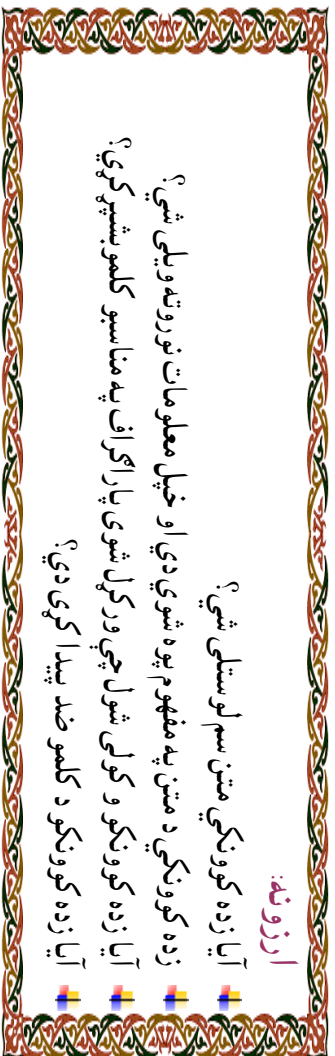 ارزونه:
آیا زده کوونکي متن سم لوستلی شي؟
زده کوونکي د متن په مفهوم پوه شوي دي او خپل معلومات نورو ته ویلی شي؟
آیا زده کوونکو و کولی شول چې ورکړل شوی پاراګراف په مناسبو کلمو بشپړ کړي؟
آیا زده کوونکو د کلمو ضد پیدا کړی دي؟